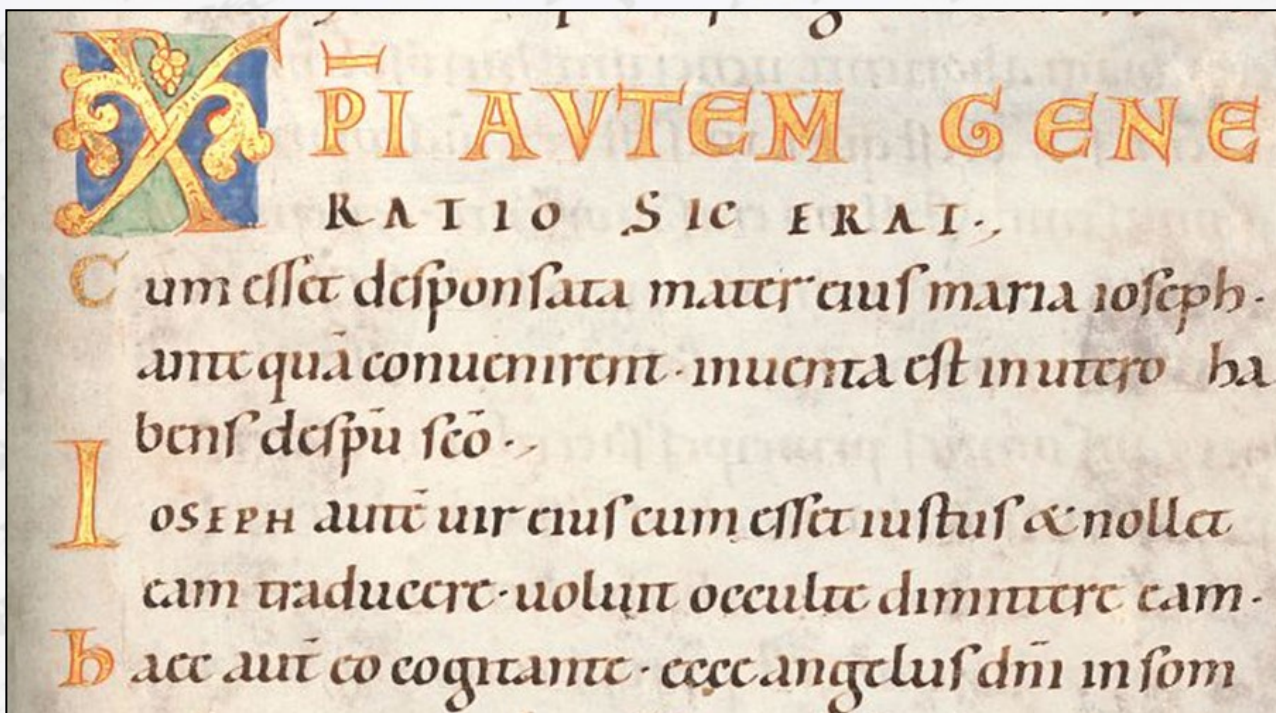 XPI AVTEM GENE
RATIO SIC ERAT.,
Cum esset desponsata mater eius maria ioseph·
ante quā conuenirent· inuenta est in utero ha
bens despū scō·,
IOSEPH autē uir eius cum esset iustus & nollet
eam traducere· uoluit occulte dimittere eam·
haec aut̄ eo cogitante· ecce angelus dn̄i in som